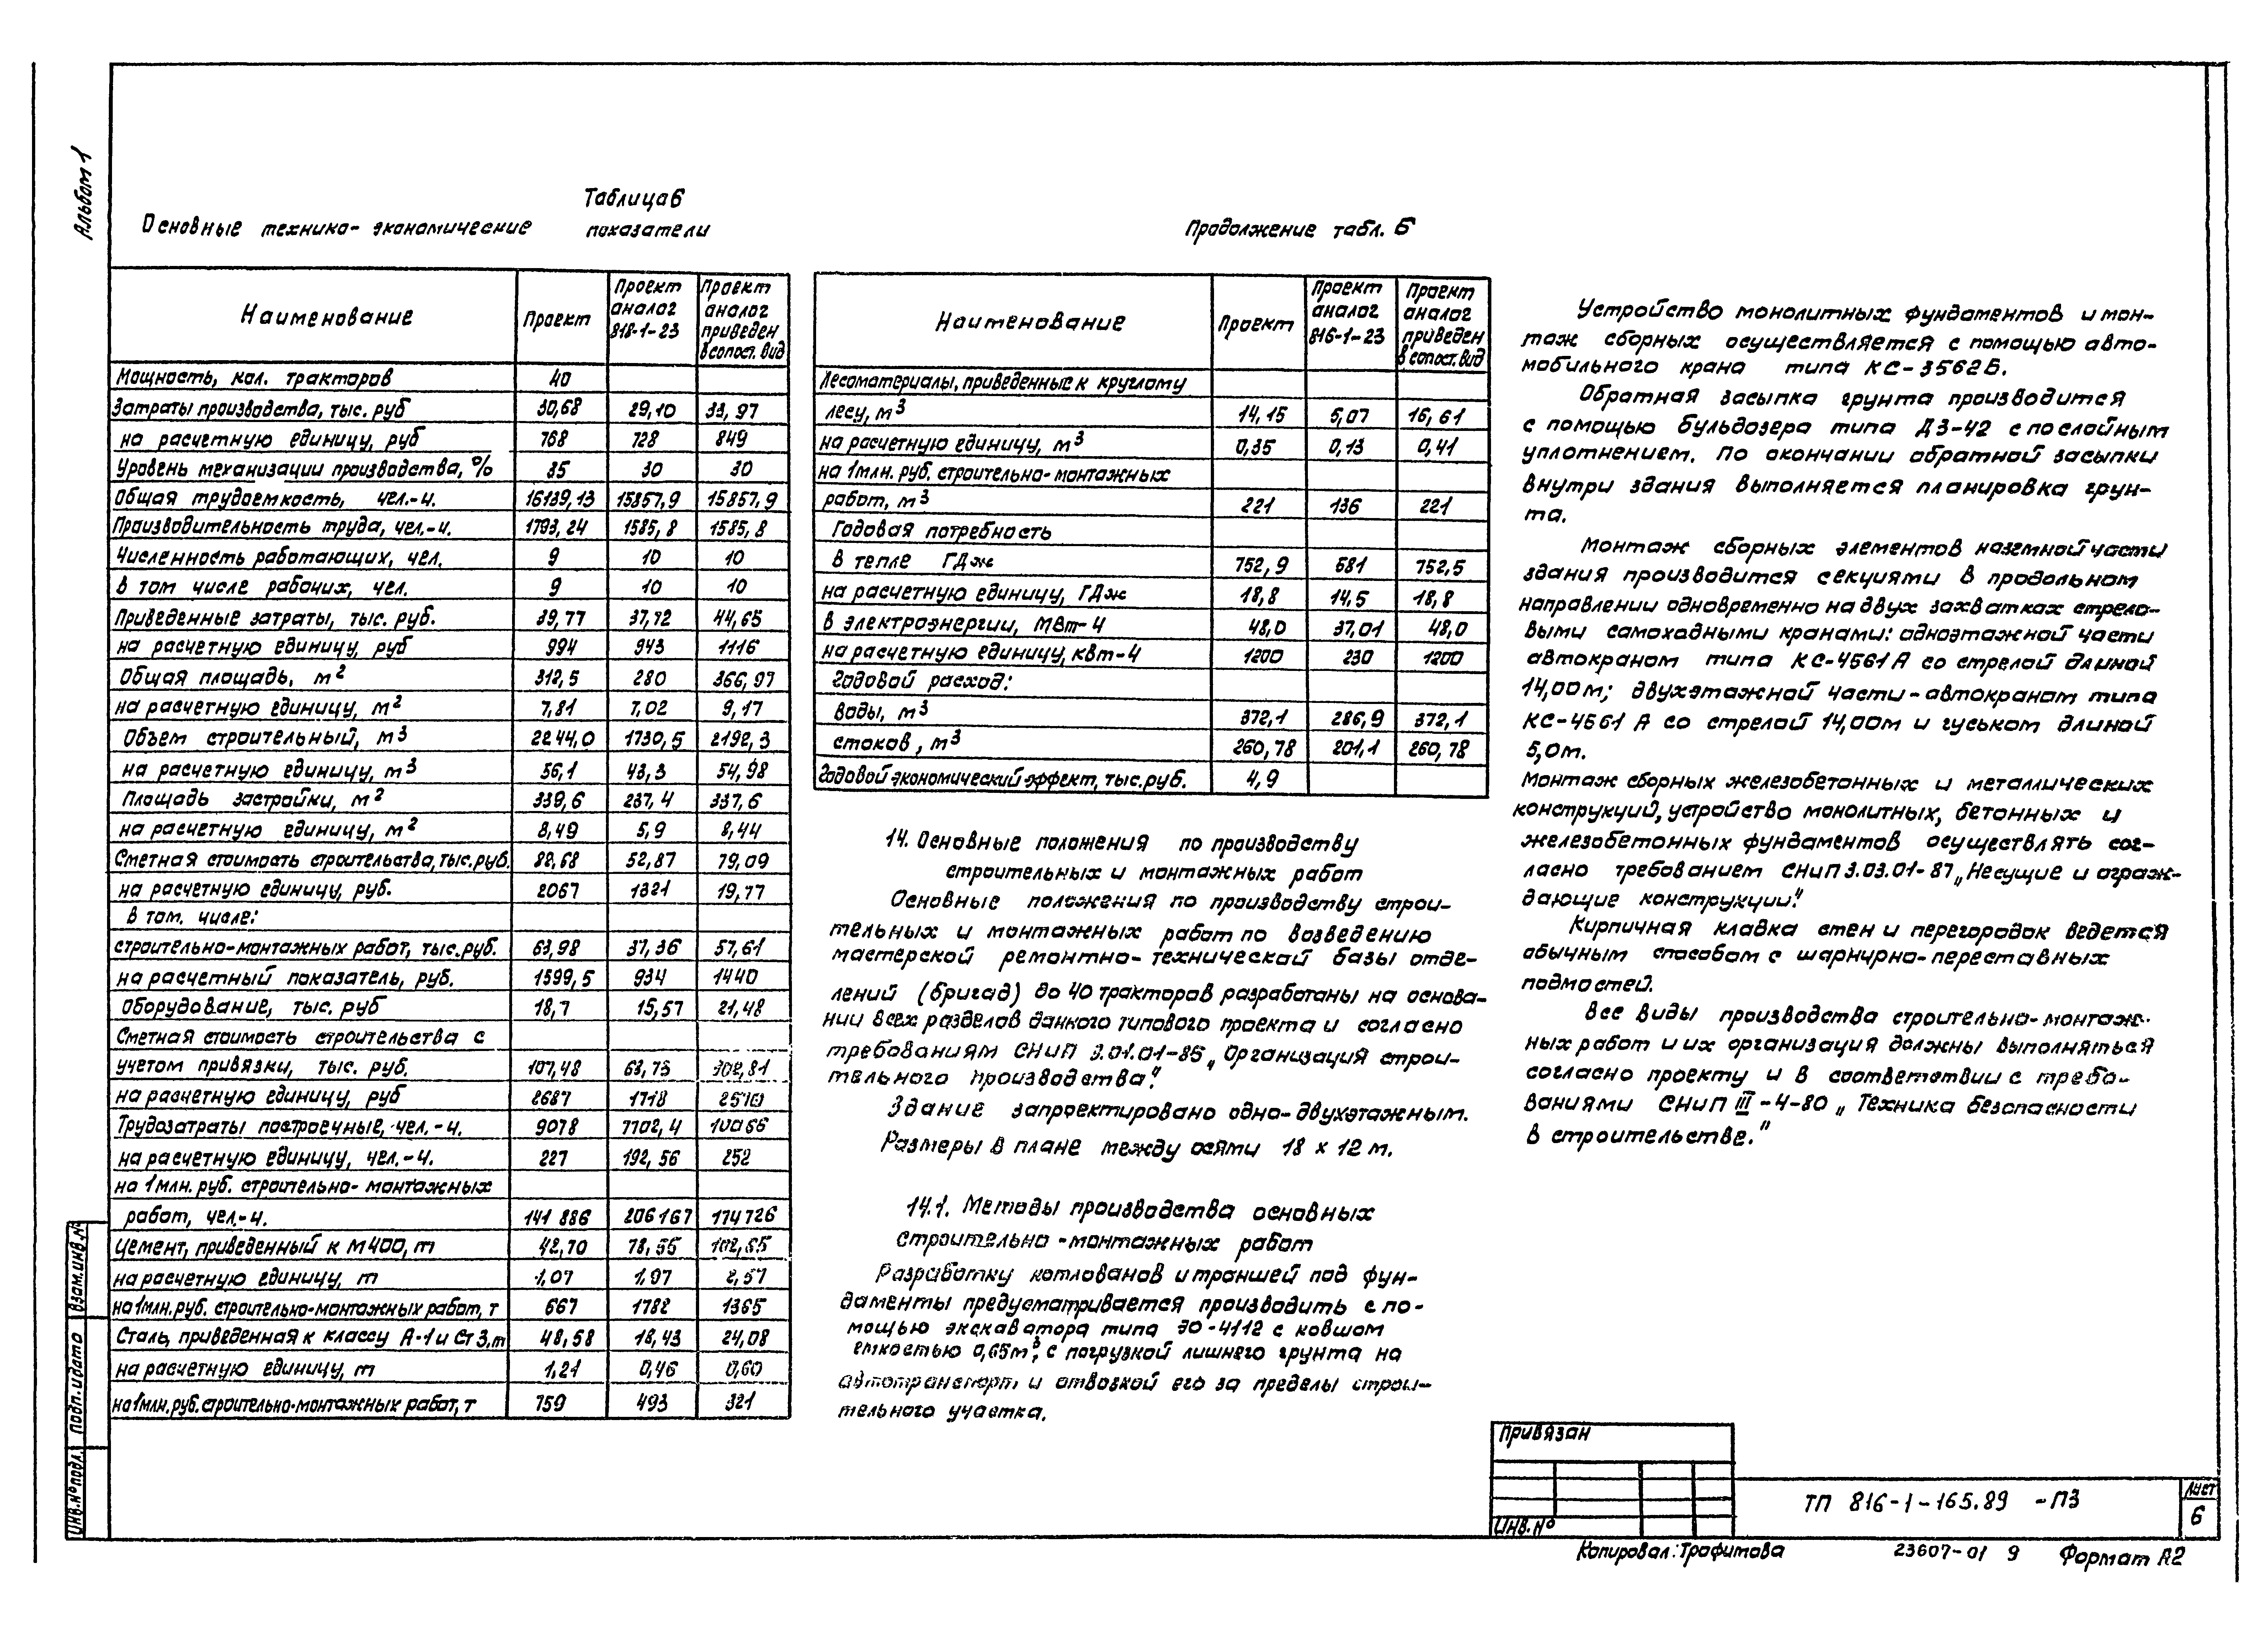 Альбом 1
Таблица 6
Основные технико-экономические показатели
Наименование | Проект | Проект аналог 818-1-23 | Проект аналог приведен в сопост. вид
Мощность, кол. тракторов | 40
Затраты производства, тыс. руб | 30,68 | 29,10 | 33,97
на расчетную единицу, руб | 768 | 728 | 849
Уровень механизации производства, % | 35 | 30 | 30
Общая трудоемкость, чел.-ч. | 16139,13 | 15857,9 | 15857,9
Производительность труда, чел.-ч. | 1793,24 | 1585,8 | 1585,8
Численность работающих, чел. | 9 | 10 | 10
в том числе рабочих, чел. | 9 | 10 | 10
Приведенные затраты, тыс. руб. | 39,77 | 37,72 | 44,65
на расчетную единицу, руб | 994 | 943 | 1116
Общая площадь, м2 | 312,5 | 280 | 366,97
на расчетную единицу, м2 | 7,81 | 7,02 | 9,17
Объем строительный, м3 | 2244,0 | 1730,5 | 2192,3
на расчетную единицу, м3 | 56,1 | 43,3 | 54,98
Площадь застройки, м2 | 339,6 | 237,4 | 337,6
на расчетную единицу, м2 | 8,49 | 5,9 | 8,44
Сметная стоимость строительства, тыс. руб. | 82,68 | 52,87 | 79,09
на расчетную единицу, руб. | 2067 | 1321 | 19,77
в том. числе:
строительно-монтажных работ, тыс. руб. | 63,98 | 37,36 | 57,61
на расчетный показатель, руб. | 1599,5 | 934 | 1440
оборудование, тыс. руб | 18,7 | 15,57 | 21,48
Сметная стоимость строительства с
учетом привязки, тыс. руб. | 107,48 | 68,73
на расчетную единицу, руб | 2687 | 1718
Трудозатраты построечные, чел.-ч. | 9078 | 7702,4
на расчетную единицу, чел.-ч. | 227 | 192,56 | 252
на 1 млн. руб. строительно-монтажных
работ, чел.-ч. | 141 886 | 206 167 | 174 726
Цемент, приведенный к М400, т | 42,70 | 78,55
на расчетную единицу, т | 1,07 | 1,97 | 2,57
на 1 млн. руб. строительно-монтажных работ, т | 667 | 1782 | 1365
Сталь, приведенная к классу А-1 и Ст 3, т | 48,58 | 18,43 | 24,08
на расчетную единицу, т | 1,21 | 0,46 | 0,60
на 1 млн. руб. строительно-монтажных работ, т | 759 | 493 | 321
Продолжение табл. 6
Наименование | Проект | Проект аналог 816-1-23 | Проект аналог приведен в сопост. вид
Лесоматериалы, приведенные к круглому
лесу, м3 | 14,15 | 5,07 | 16,61
на расчетную единицу, м3 | 0,35 | 0,13 | 0,41
на 1 млн. руб. строительно-монтажных
работ, м3 | 221 | 136 | 221
Годовая потребность
в тепле ГДж | 752,9 | 581 | 752,5
на расчетную единицу, ГДж | 18,8 | 14,5 | 18,8
в электроэнергии, МВт-ч | 48,0 | 37,01 | 48,0
на расчетную единицу, кВт-ч | 1200 | 230 | 1200
Годовой расход:
воды, м3 | 372,1 | 286,9 | 372,1
стоков, м3 | 260,78 | 201,1 | 260,78
Годовой экономический эффект, тыс. руб. | 4,9
14. Основные положения по производству
строительных и монтажных работ
Основные положения по производству строи-
тельных и монтажных работ по возведению
мастерской ремонтно-технической базы отде-
лений (бригад) до 40 тракторов разработаны на основа-
нии всех разделов данного типового проекта и согласно
требованиям СНиП 3.01.01-85 „Организация строи-
тельного производства".
Здание запроектировано одно-двухэтажным.
Размеры в плане между осями 18 x 12 м.
14.1. Методы производства основных
строительно-монтажных работ
Разработку котлованов и траншей под фун-
даменты предусматривается производить с по-
мощью экскаватора типа ЭО-4112 с ковшом
емкостью 0,65м3, с погрузкой лишнего грунта на
автотранспорт и отвозкой его за пределы строи-
тельного участка.
Устройство монолитных фундаментов и мон-
таж сборных осуществляется с помощью авто-
мобильного крана типа КС-3562Б.
Обратная засыпка грунта производится
с помощью бульдозера типа ДЗ-42 с послойным
уплотнением. По окончании обратной засыпки
внутри здания выполняется планировка грун-
та.
Монтаж сборных элементов наземной части
здания производится секциями в продольном
направлении одновременно на двух захватках стрело-
выми самоходными кранами: одноэтажной части
автокраном типа КС-4561А со стрелой длиной
14,00м; двухэтажной части-автокраном типа
КС-4561 А со стрелой 14,00м и гуськом длиной
5,0м.
Монтаж сборных железобетонных и металлических
конструкций, устройство монолитных, бетонных и
железобетонных фундаментов осуществлять сог-
ласно требованием СНиП 3.03.01-87 „Несущие и ограж-
дающие конструкции".
Кирпичная кладка стен и перегородок ведется
обычным способом с шарнирно-переставных
подмостей.
Все виды производства строительно-монтаж-
ных работ и их организация должны выполняться
согласно проекту и в соответствии с требо-
ваниями СНиП III-4-80 „Техника безопасности
в строительстве."
Взам. инв. №
Подп. и дата
Инв. № подл.
Привязан
Инв. №
ТП 816-1-165.89 -ПЗ
Лист
6
Копировал: Трофимова 23607-01 9 Формат А2